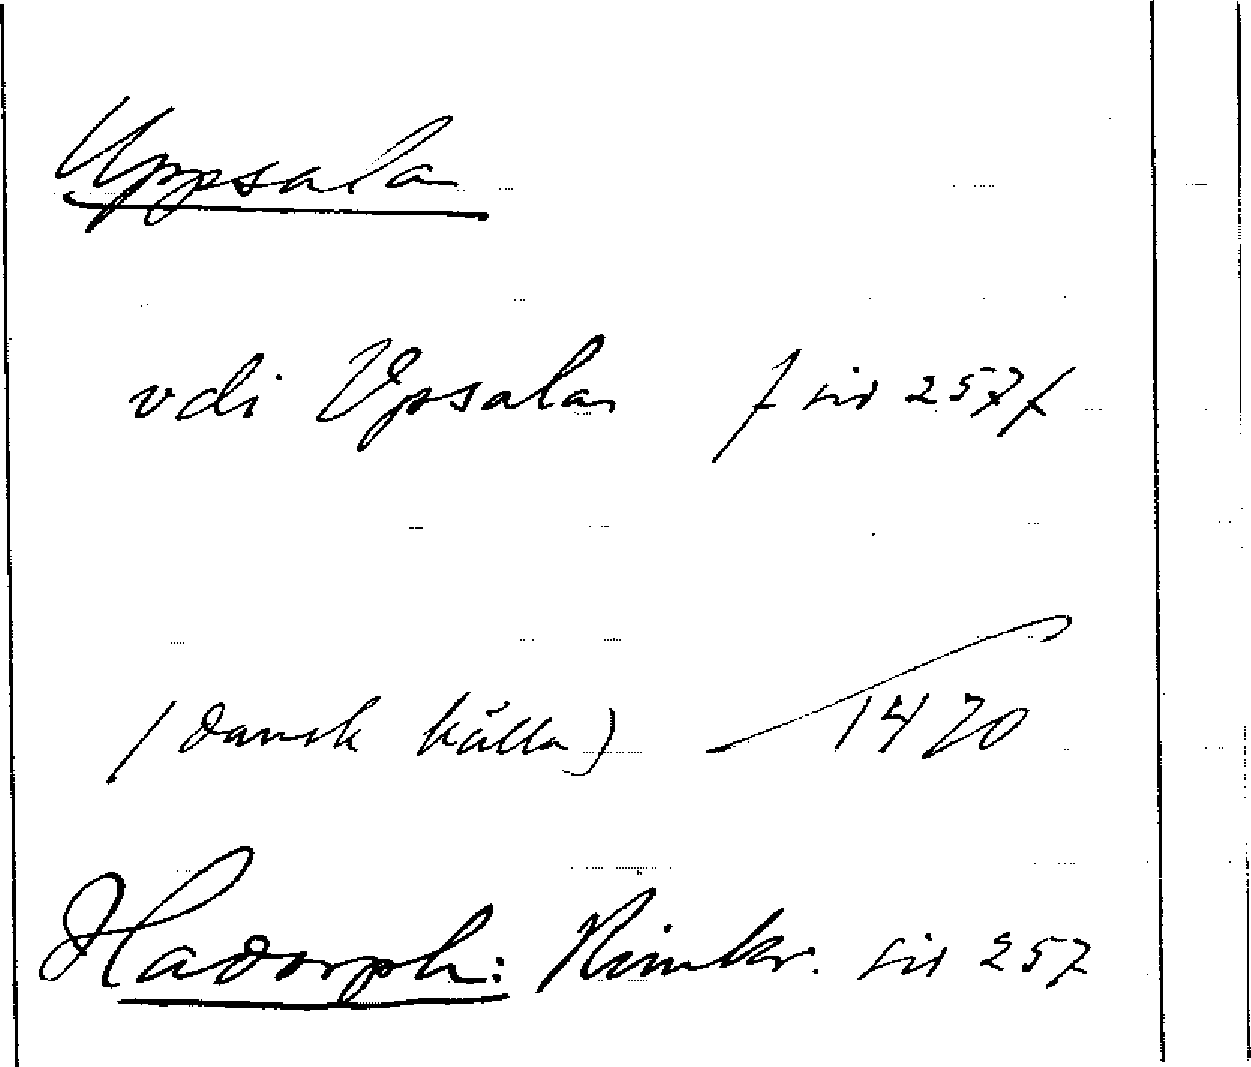 Uppsala
vdi Vpsala / sid 257 /
(dansk källa) 1470
Hadorph: Rimkr. sid 257